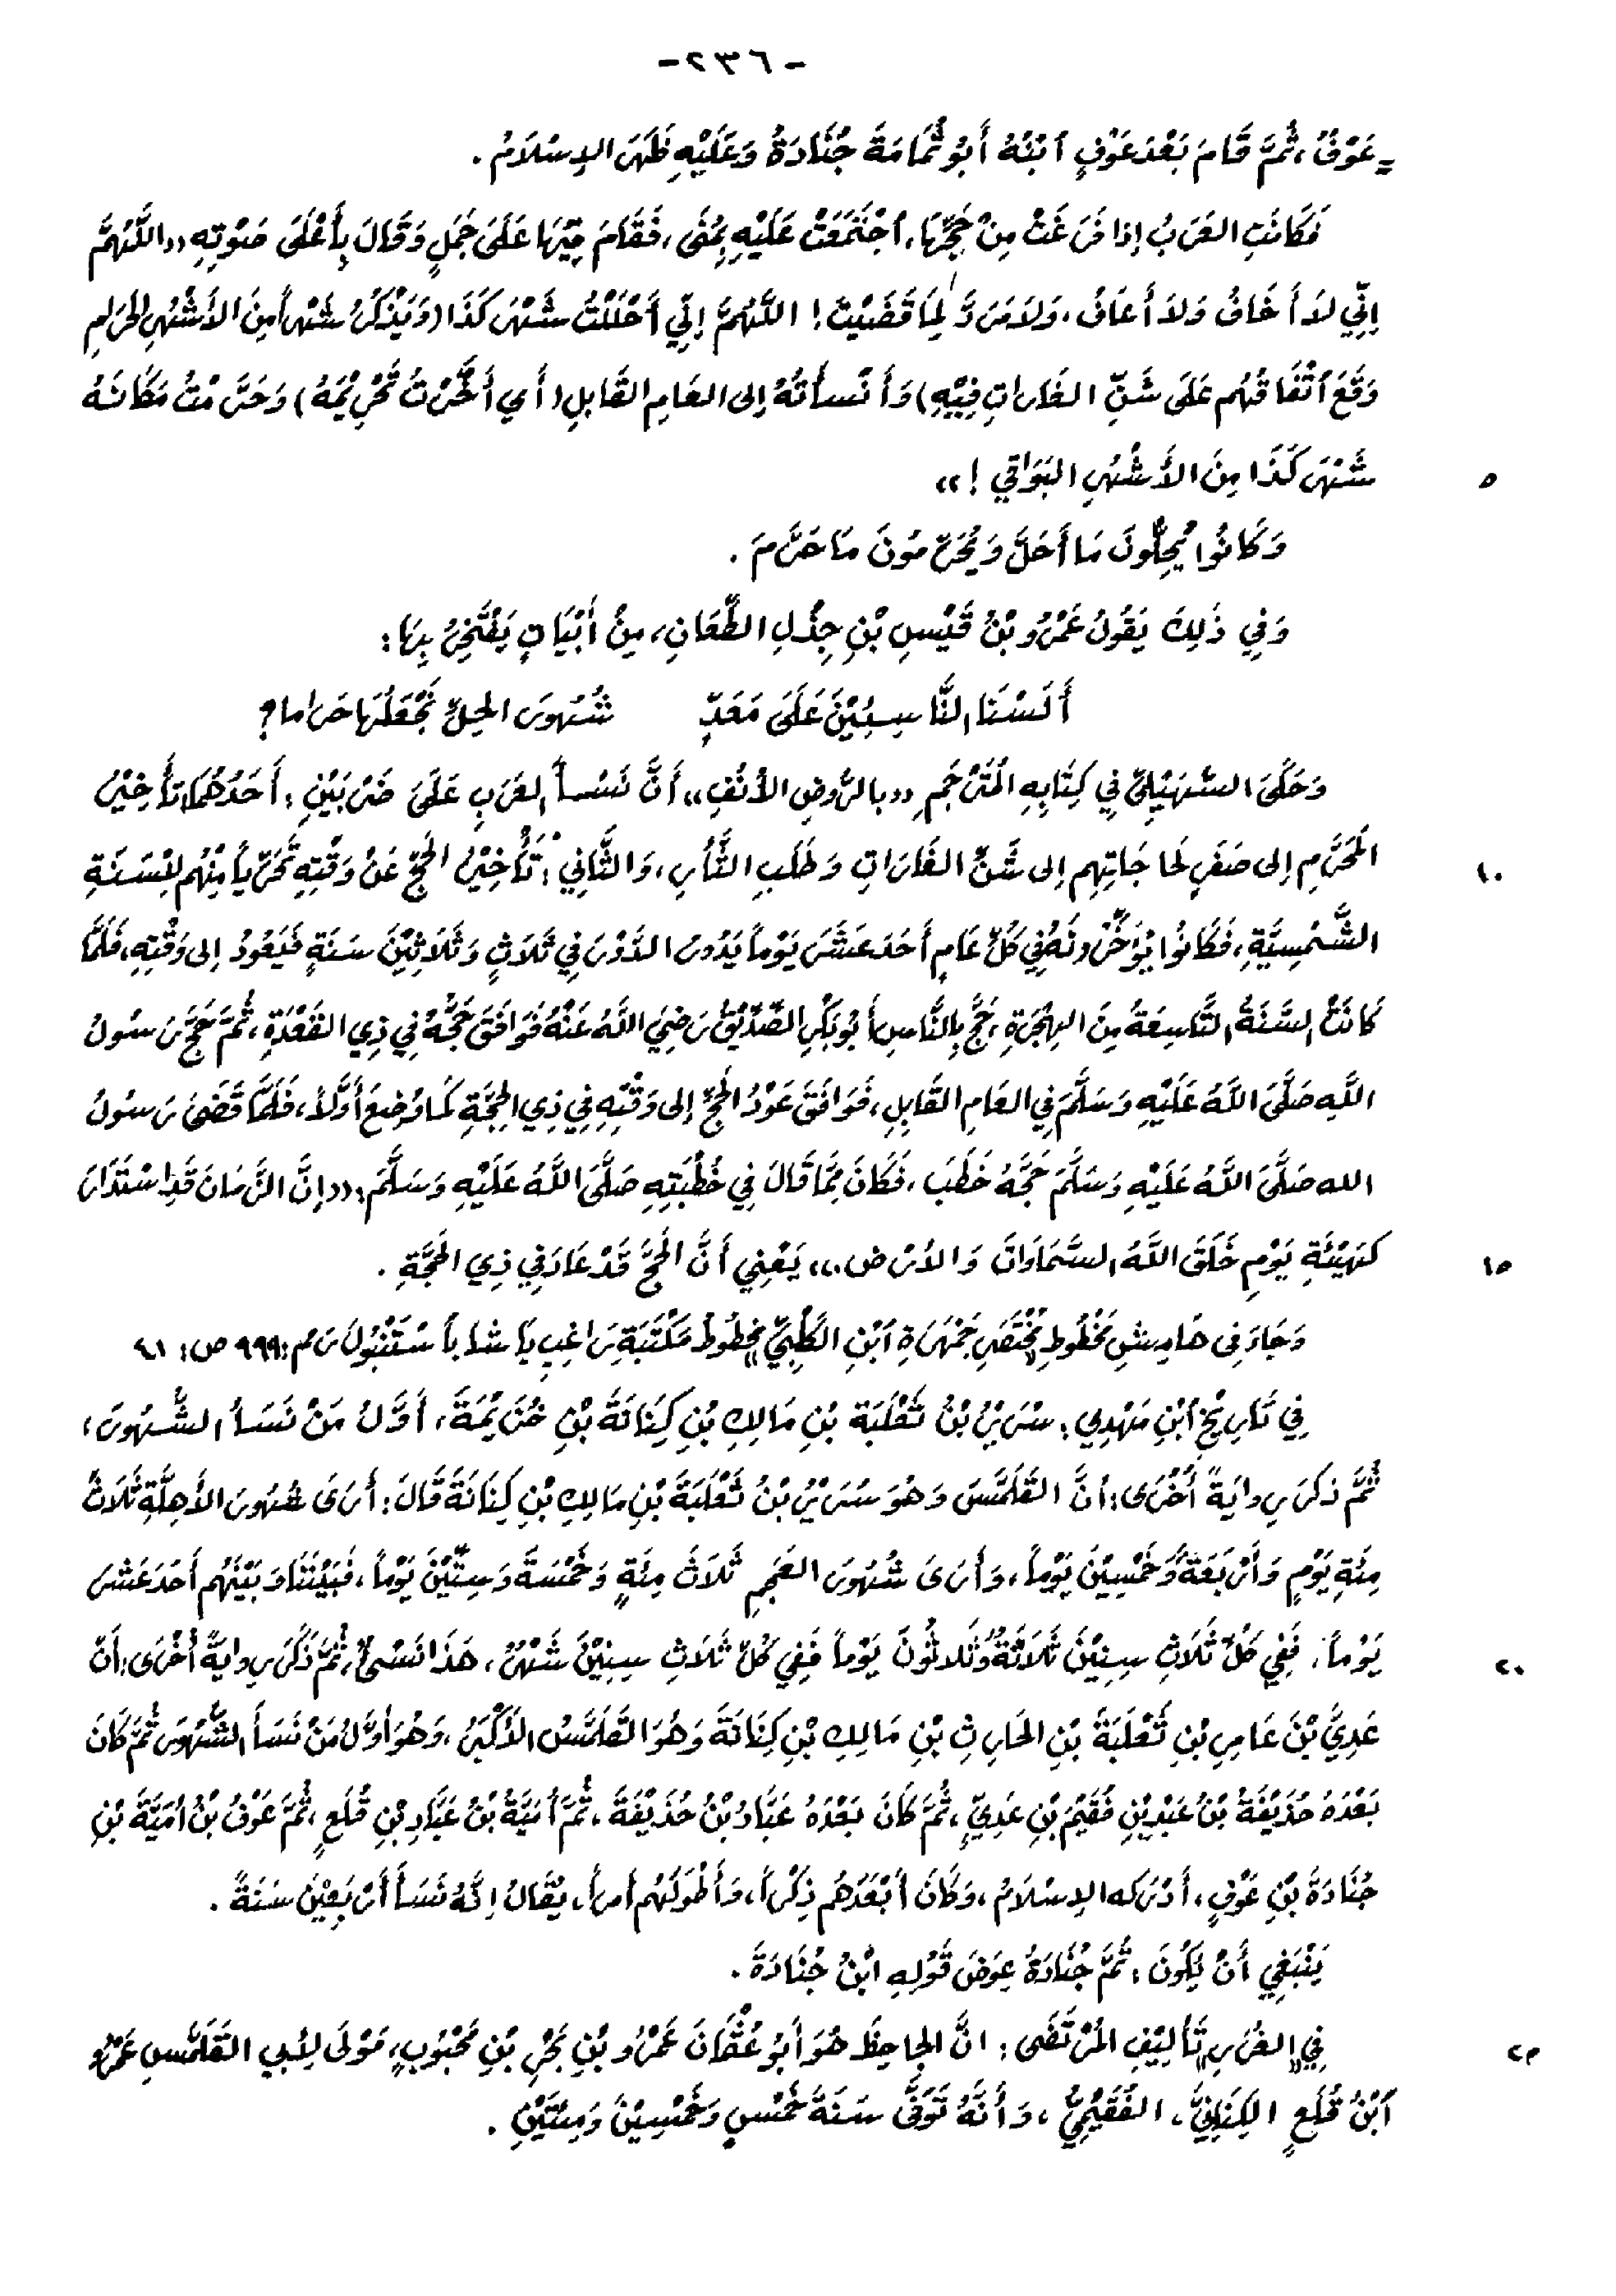 -٢٣٦-
= عَوْفٌ، ثُمَّ قَامَ بَعْدَ عَوْفٍ ٱبْنُهُ أَبُو ثُمَامَةَ جُنَادَةُ وَعَلَيْهِ ظَهَرَ الإِسْلَامُ .
فَكَانَتِ العَرَبُ إذا فَرَغَتْ مِنْ حَجِّهَا، ٱجْتَمَعَتْ عَلَيْهِ بِمِنَى، فَقَامَ فِيْهَا عَلَى جَمَلٍ وَقَالَ بِأَعْلَى صَوْتِهِ «اللَّهُمَّ
إنِّي لَا أَخَافُ وَلَا أُعَافُ، وَلَا مَرَدَّ لِمَا قَضَيْتَ! اللَّهُمَّ إنِّي أَحْلَلْتُ شَهْرَ كَذَا (وَيَذْكُرُ شَهْراً مِنَ الأَشْهُرِ الحُرَامِ
وَقَعَ ٱتِّفَاقُهُم عَلَى شَنِّ الغَارَاتِ فِيْهِ) وَأَنْسأتُهُ إلى العَامِ القَابِلِ (أَي أَخَّرْتُ تَحْرِيْمَهُ) وَحَرَّمْتُ مَكَانَهُ
شَهْرَ كَذَا مِنَ الأَشْهُرِ البَوَاقِي !» ٥
وَكَانُوا يُحِلُّونَ مَا أَحَلَّ وَيُحَرِّمُونَ مَا حَرَّمَ .
وَفِي ذَلِكَ يَقُولُ عَمْرُو بْنُ قَيْسِ بْنِ جِذْلِ الطِّعَانِ، مِنْ أَبْيَاتٍ يَفْتَخِرُ بِهَا:
أَلَسْنَا النَّاسِئِيْنَ عَلَى مَعَدٍّ شُهُورَ الحِلِّ نَجْعَلُهَا حَرَاما؟
وَحَكَى السُّهَيْلِيُّ فِي كِتَابِهِ المُتَرْجَمِ «بالرَّوضِ الأُنُفِ» أَنَّ نَسْأَ العَرَبِ عَلَى ضَرْبَيْنِ: أَحَدُهُمَا تَأْخِيْرُ
المُحَرَّمِ إلى صَفَرٍ لحاجَاتِهِم إلى شَنِّ الغَارَاتِ وَطَلَبِ الثَّأْرِ، وَالثَّانِي: تَأْخِيْرُ الحَجِّ عَنْ وَقْتِهِ تَحَرِّياً مِنْهُم لِلسَّنَةِ ١٠
الشَّمْسِيَّةِ، فَكَانُوا يُؤَخِّرُونَهُ فِي كُلِّ عَامٍ أَحَدَ عَشَرَ يَوْماً يَدُورُ الدَّوْرَ فِي ثَلَاثٍ وَثَلَاثِيْنَ سَنَةٍ فَيَعُودُ إلى وَقْتِهِ، فَلَمَّا
كَانَتْ السَّنَةُ التَّاسِعَةُ مِنَ الهِجْرَةِ، حَجَّ بِالنَّاسِ أَبُو بَكْرٍ الصِّدِّيْقُ رَضِيَ اللَّهُ عَنْهُ فَوَافَقَ حَجُّهُ فِي ذِي القَعْدَةِ، ثُمَّ حَجَّ رَسُولُ
اللَّهِ صَلَّى اللَّهُ عَلَيْهِ وَسَلَّمَ فِي العَامِ القَابِلِ، فَوَافَقَ عَوْدُ الحَجِّ إلى وَقْتِهِ فِي ذِي الحِجَّةِ كَمَا وُضِعَ أَوَّلاً، فَلَمَّا قَضَى رَسُولُ
الله صَلَّى اللَّهُ عَلَيْهِ وَسَلَّمَ حَجَّهُ خَطَبَ، فَكَانَ مِمَّا قَالَ فِي خُطْبَتِهِ صَلَّى اللَّهُ عَلَيْهِ وَسَلَّمَ: «إنَّ الزَّمَانَ قَدِ اسْتَدَارَ
كَهَيْئَةِ يَوْمِ خَلَقَ اللَّهُ السَّمَاوَاتِ وَالأَرْضِ.» يَعْنِي أَنَّ الحَجَّ قَدْ عَادَ فِي ذِي الحِجَّةِ . ١٥
وَجَاءَ فِى هَامِشِ مَخْطُوطِ مُخْتَصَرِ جَمْهَرَةِ ٱبْنِ الكَلْبِيِّ مخطُوطُ مَكْتَبَةِ رَاغِبِ بَاشَا بِأَسْتَنْبُولَ رقم: ٩٩٩ ص: ٦١
فِي تَارِيْخِ ٱبْنِ مَهْدِي: سُرَيْرُ بْنُ ثَعْلَبَةَ بْنِ مَالِكِ بْنِ كِنَانَةَ بْنِ خُزَيْمَةَ، أَوَّلُ مَنْ نَسَأَ الشُّهُورَ،
ثُمَّ ذَكَرَ رِوايَةً أُخْرَى: أنَّ القَلَمَّسَ وَهُوَ سُرَيْرُ بْنُ ثَعْلَبَةَ بْنِ مَالِكِ بْنِ كِنَانَةَ قَالَ: أَرَى شُهُورَ الأَهِلَّةِ ثَلَاثَ
مِئَةِ يَوْمٍ وَأَرْبَعَةً وَخَمْسِيْنَ يَوْماً، وَأَرَى شُهُورَ العَجَمِ ثَلَاثَ مِئَةٍ وَخَمْسَةً وَسِتِّيْنَ يَوْماً، فَبَيْنَنَا وَبَيْنَهُم أَحَدَ عَشَرَ
يَوْماً، فَفِي كُلِّ ثَلَاثِ سِنِيْنَ ثَلَاثَةٌ وَثَلاثُونَ يَوْماً فَفِي كُلِّ ثَلَاثِ سِنِيْنَ شَهْرٌ، هَذَا نَسْئٌ، ثُمَّ ذَكَرَ رِوايَةً أُخْرَى: أَنَّ ٢٠
عَدِيَّ بْنَ عَامِرِ بْنِ ثَعْلَبَةَ بْنِ الحَارِثِ بْنِ مَالِكِ بْنِ كِنَانَةَ وَهُوَ القَلَمَّسُ الأَكْبَرُ، وَهُوَ أَوَّلُ مَنْ نَسَأَ الشُّهُورَ ثُمَّ كَانَ
بَعْدَهُ حُذَيْفَةُ بْنُ عَبْدِ بْنِ فُقَيْمِ بْنِ عَدِيٍّ، ثُمَّ كَانَ بَعْدَهُ عَبَّادُ بْنُ حُذَيْفَةَ، ثُمَّ أُمَيَّةُ بْنُ عَبَّادِ بْنِ قُلَعٍ، ثُمَّ عَوْفُ بْنُ أُمَيَّةَ بْنِ
جُنَادَةَ بْنِ عَوْفٍ، أَدْرَكه الإِسْلَامُ، وَكَانَ أَبْعَدَهُم ذِكْراً، وَأَطْوَلَهُم أَمراً، يُقَالُ إنَّهُ نَسَأَ أَرْبَعِيْنَ سَنَةً .
يَنْبَغِي أَنْ يَكُونَ: ثُمَّ جُنَادَةُ عِوَضَ قَوْلِهِ ابْنُ جُنَادَةَ .
فِي "الغُرَرِ" تَأْلِيْفِ المُرْتَضَى: انَّ الجاحِظَ هُوَ أَبُو عُثْمَانَ عَمْرُو بْنِ بَحْرِ بْنِ مَحْبُوبٍ، مَوْلَى لِأَبي القَلَمَّسِ عَمْرُو ٢٥
ٱبْنُ قُلَعٍ الكِنَانِيِّ، الفُقَيْمِيُّ، وَأَنَّهُ تُوَفَّى سَنَةَ خَمْسٍ وَخَمْسِيْنَ وَمِئَتَيْنِ .